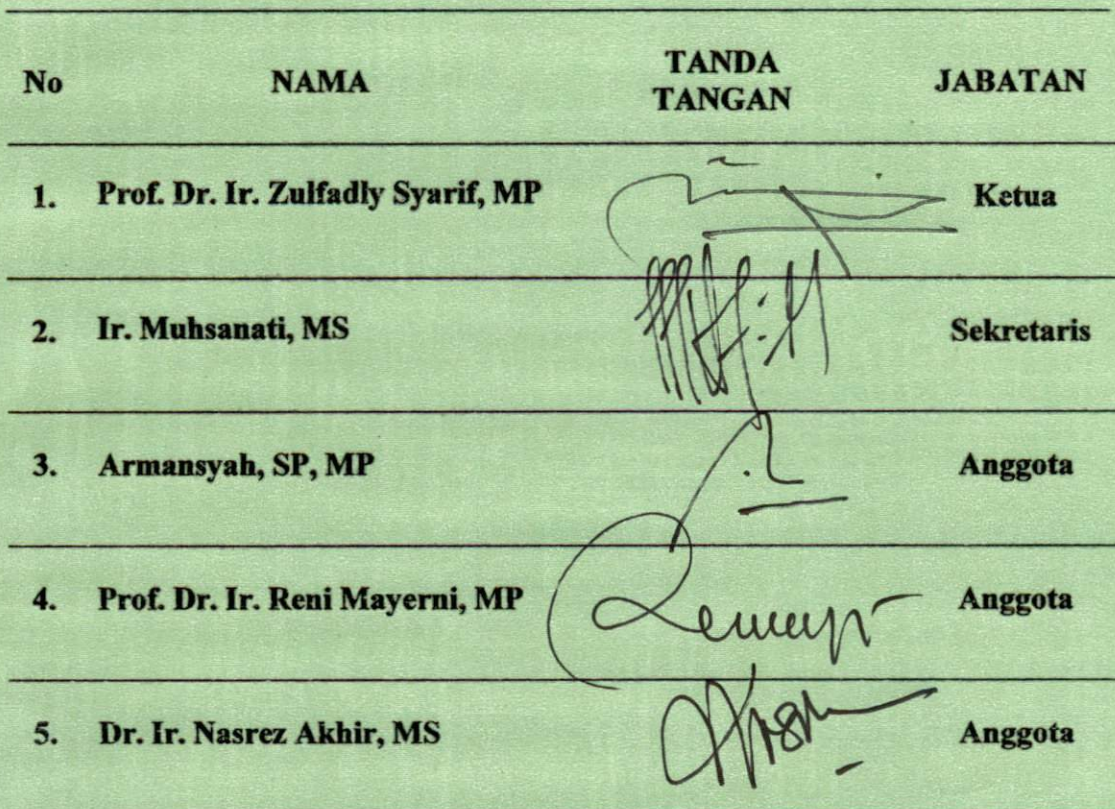 No NAMA TANDA TANGAN JABATAN
1. Prof. Dr. Ir. Zulfadly Syarif, MP Ketua
2. Ir. Muhsanati, MS Sekretaris
3. Armansyah, SP, MP Anggota
4. Prof. Dr. Ir. Reni Mayerni, MP Anggota
5. Dr. Ir. Nasrez Akhir, MS Anggota